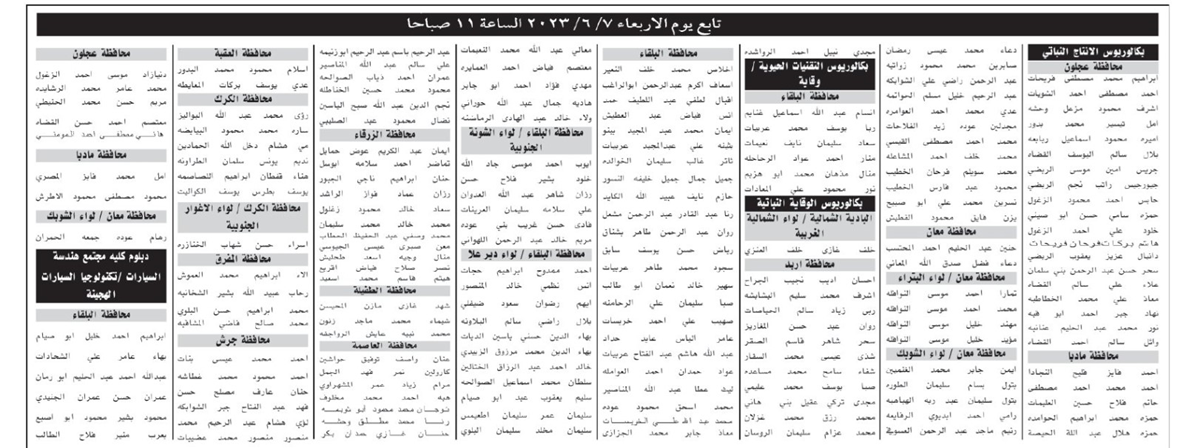 تابع يوم الاربعاء ٧/ ٦/ ٢٠٢٣ الساعة ١١ صباحا
بكالوريوس الانتاج النباتي
محافظة عجلون
ابراهيم محمد مصطفى فريحات
احمد مصطفى احمد الشويات
اشرف محمود مزعل وحشه
امل تيسير محمد بدور
اميره محمود اسماعيل ربابعه
بلال سالم اليوسف القضاه
جريس امين موسى الربضي
جيورجيس راتب نجم الربضي
حابس احمد محمود الزغول
حمزه سامي حسن ابو سيني
خلود علي احمد الزغول
هاشم بركات فرحان فريحات
دانيال عزيز يعقوب الربضي
سحر حسن عبد الرحمن بني سلمان
علاء علي سالم القضاه
معاذ علي محمد الخطاطبه
نهاد جبر احمد ابو فيه
نور محمد عبد الحليم عنانبه
وائل سالم احمد القضاه
محافظة مادبا
احمد فايز فليح النجادا
احمد محمد احمد مصطفى
حاتم فلاح حسين العليمات
حمزه محمد ابراهيم الحوامده
حمزه هلال عبد الله الحيصة
دعاء محمد عيسى رمضان
صابرين محمد محمود زواتيه
عبد الرحمن راضي علي الشوابكه
عبد الرحيم خليل مسلم الموالمه
عدي محمد احمد العوامره
مجدلين عوده زيد الفلاحات
محمد احمد مصطفى القيسي
محمد خلف احمد المشاعله
محمد سويلم فرحان الخطيب
محمود عبد فارس الخطيب
نسرين محمد علي ابو صبيح
يزن فايق محمود الفطيش
محافظة معان
حنين عبد الحليم احمد المحتسب
دعاء فضل صدقي الله المعاني
محافظة معان / لواء البتراء
تمارا احمد موسى النوافله
احمد محمد موسى النوافله
مهند خليل موسى النوافله
مؤيد خليل موسى النوافله
محافظة معان / لواء الشوبك
ايمن جابر محمد الغنميين
بتول بسام سليمان الطوره
بتول سليمان عبد ربه الهباهبه
رامي احمد ابديوي الرفايعه
رنيم ماجد عبد الرحمن العسوفي
مجدي نبيل احمد الرواشده
بكالوريوس التقنيات الحيوية / وقاية
محافظة البلقاء
انسام عبد الله اسماعيل غنايم
ربا يوسف محمد عربيات
سعاد سليمان نايف نعيمات
منار احمد عواد الرحاحله
منال مذهان محمد ابو هزيم
نور محمود علي المعادات
بكالوريوس الوقاية النباتية
البادية الشمالية / لواء الشمالية الغربية
خلف غازي خلف العنزي
محافظة اربد
احسان اديب نجيب الجراح
اشرف محمد سليم البشايشه
ربى زياد سالم الحياصات
روان عبد حسن المغاريز
سحر شاهر قاسم الصقر
شذى عيسى محمد السقار
شفاء سامح محمد مساعده
صبا يوسف محمد عليمي
مجدي تركي عقيل بني هاني
محمد رزق محمد غزلان
محمد عزام سليمان الروسان
محافظة البلقاء
اخلاص محمد خلف النعير
اسعاف اكرم عبدالرحمن ابوالراغب
اقبال لطفي عبد اللطيف حمد
انس فياض عبد العطيش
ايمان محمد عبد المجيد بينو
بثينه علي عبدالمجيد عربيات
ثائر غالب سليمان الخوالده
جميل جمال جميل خليفه النسور
حازم نايف عبيد الله الكايد
رنا عبد القادر عبد الرحمن مشعل
روان عبد الرحمن طاهر بشتاق
رياض حسن يوسف سابق
سجود محمد طاهر عربيات
سهير خالد نعمان ابو طالب
صبا سليمان علي الرحامنه
صهيب علي احمد خريسات
عامر الياس عايد حداد
عبد الله هاشم عبد الفتاح عربيات
عواد حمدان احمد العوامله
ليث عطا عبد الله المناصير
محمد اسحق محمود عوده
محمد عبد الله طني الخريسات
معاذ جابر محمد الجزازي
معالي عبد الله محمد النعيمات
معتصم فياض احمد العمايره
مهدي فؤاد احمد ابو جابر
هاديه جمال عبد الله حوراني
ولاء خالد عبد الهادي الرماضنه
محافظة البلقاء / لواء الشونة الجنوبية
ايوب احمد موسى جاد الله
خلود بشير فلاح حسن
رزان شاهر عبد الله العدوان
علي سلامه سليمان العرينات
فادي حسن غريب بني عوده
مريم خالد عبد الرحمن اللهواني
محافظة البلقاء / لواء دير علا
احمد ممدوح ابراهيم حجات
انس نظمي خالد المنصور
ايهم رضوان سعود ضيفني
بلال راضي سالم البلاونه
بهاء الدين حسني ياسين الديات
بهاء الدين محمد مرزوق الزبيدي
خالد احمد عبد الرزاق الختالين
سلطان محمد اسماعيل الصوالحه
سليم يعقوب عبد ابو صيام
سليمان عمر سليمان اطعيمس
سليمان محند سليمان البلوي
عبد الرحيم باسم عبد الرحيم ابوزنيمه
علي سالم عبد الله المناصير
عمران احمد ذياب الصوالحه
محمود محمد حسين الخناطله
نجم الدين عبد الله سبح الياسين
نضال محمود عبد الصليبي
محافظة الزرقاء
ايمان عبد الكريم عوض حمايل
تماضر احمد سلامه ابوسل
حنان ابراهيم ناجي الجبور
رزان عماد فواز الراشد
سعاد خالد محمود زغلول
محمد خالد محمد سليمان
محمد وصفي عبد الحفيظ الحطاب
معن صبري عيسى الجيوسي
منال وجيه اسعد طحليش
نصر سلاح فياض اقريع
هيثم قاسم محمد اسعيد
محافظة الطفيلة
شهد غازي مازن المحيسن
شيماء محمد ماجد زنون
محمد نبيه عايش الرواجفه
محافظة العاصمة
حنان واصف توفيق حواشين
كارولين نمر فهد الجمل
مرام زياد عمر المشهراوي
هبه احمد محمد مخلوف
نوجان محمد محمود ابو نويصه
رنا محمد مطلق وحشه
حنان غازي حمدان بكر
محافظة العقبة
اسلام محمود محمد البدور
عدي يوسف بركات العايطه
محافظة الكرك
رؤى محمد عبد الله البواليز
ساره محمد محمود البيايضه
مي هشام دخل الله الحمادين
نديم يونس سلمان الطراونه
هناء قفطان ابراهيم القصاصمه
يوسف بطرس يوسف الكواليت
محافظة الكرك / لواء الاغوار الجنوبية
اسراء حسن شهاب الخنازره
محافظة المفرق
الاء ابراهيم محمد العموش
رحاب عبيد الله بشير الشخانبه
محمد ابراهيم حسن البلوي
محمد صالح فاضي المشاقبه
محافظة جرش
احمد محمد عيسى بنات
احمد محمود محمد عطاشه
حنان عارف مصلح حسن
فهد عبد الفتاح جبر الشوابكه
لؤي هشام عبد الرحيم محمد
منصور منصور محمد عضيبات
محافظة عجلون
دنيازاد موسى احمد الزغول
محمد عامر محمد الرشايده
مريم حسن محمد الحنيطي
معتصم احمد حسن القضاه
هاني مصطفى احمد المومني
محافظة مادبا
امل محمد فايز المصري
محمود مصطفى محمود الاطرش
محافظة معان / لواء الشوبك
رهام عوده جمعه الحمران
دبلوم كلية مجتمع هندسة السيارات /تكنولوجيا السيارات الهجينة
محافظة البلقاء
ابراهيم احمد خليل ابو صيام
بهاء عامر علي الشحادات
عبدالله احمد عبد الحليم ابو رمان
عمران حسن عمران الجنيدي
محمود بشير محمود ابو اصبع
يعرب منير فلاح الطالب